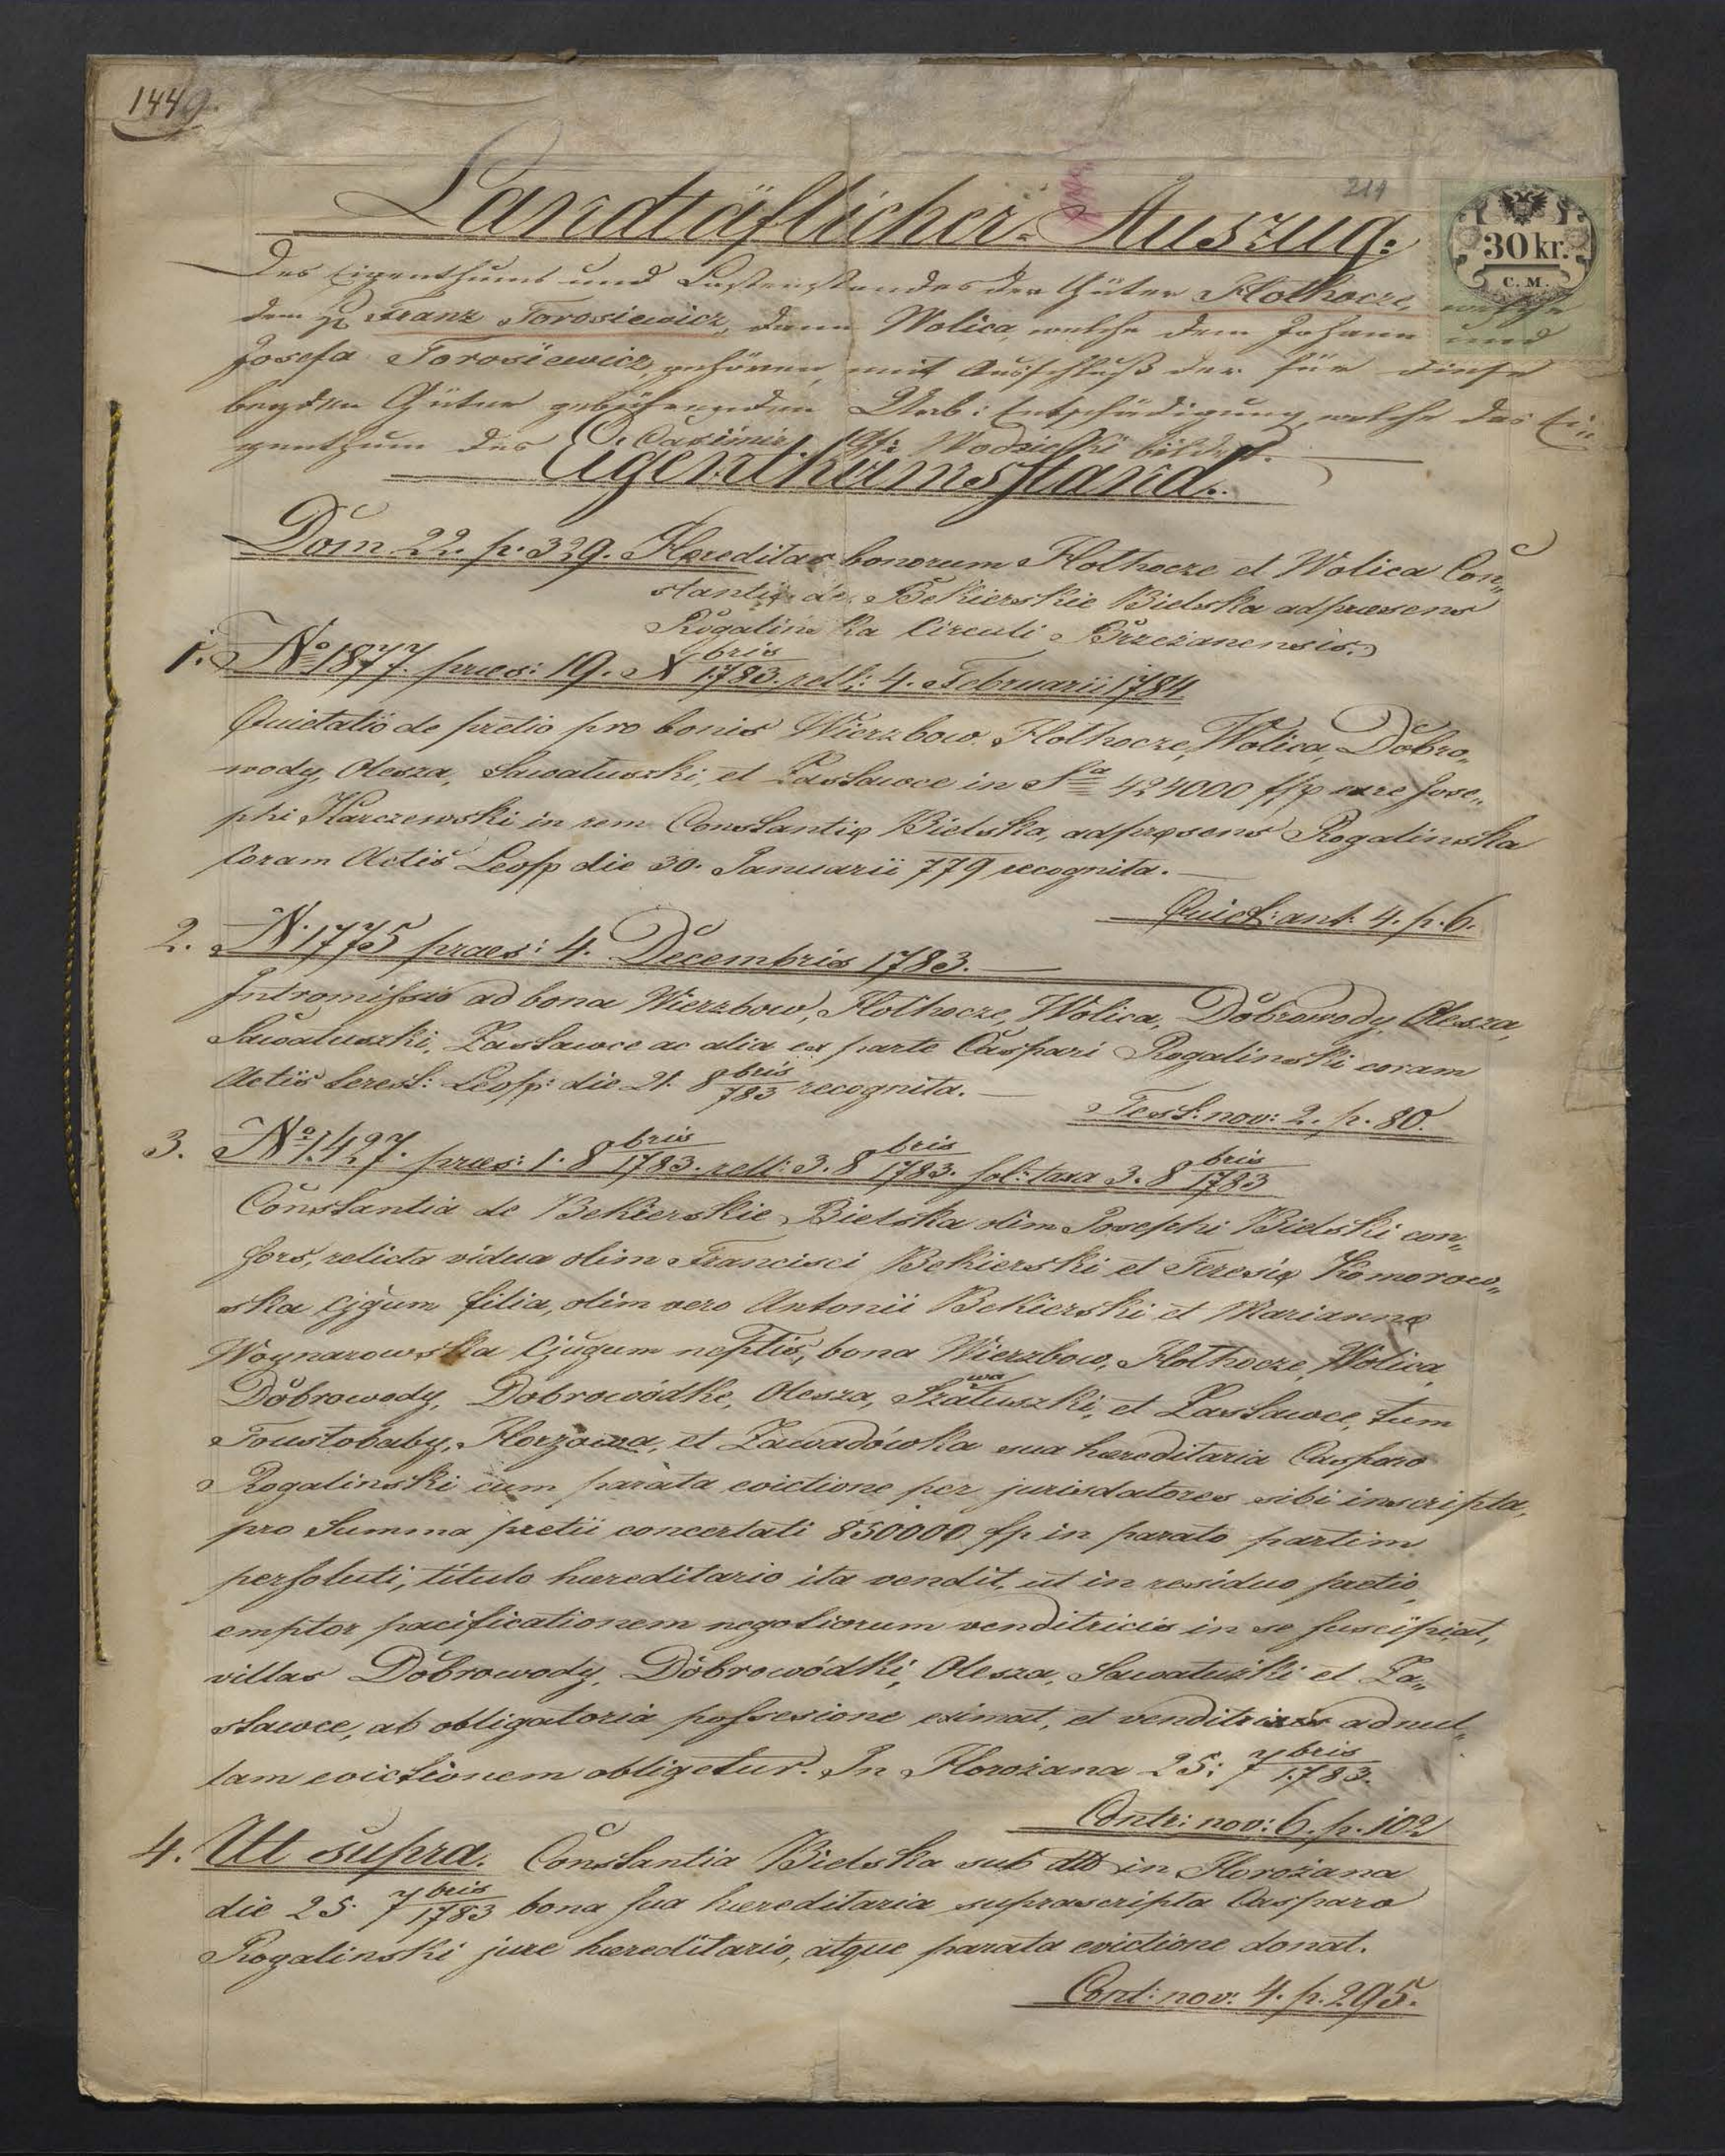 1449.
211
Landtäflicher Auszug.
30 kr.
C. M.
Des Eigenthums und Lastenstandes der Güter Hołhocze, welche
dem H Franz Torosiewicz, dann Wolica, welche dem Johann und
Josefa Torosiewicz gehören, mit Ausschluß der für diese
beyden Güter gebührenden Urb: Entschädigung, welche das Ei„
genthum des Casimir Gf: Wodzicki bildet.
Eigenthumsstand.
Dom 22. p. 329. Hæreditas bonorum Hołhocze et Wolica Con„
stantiæ de Bekierskie Bielska ad præsens
Rogalinska Circuli Brzeżanensis.
1. No 1877. præs: 19. X bris 1783. rell: 4. Februarii 1784
Quietatio de pretio pro bonis Wierzbow, Hołhocze, Wolica, Dobro„
wody, Olesza, Sawałuszki, et Zasławce in Sa 424000 flp ure Jose„
phi Karczewski in rem Constantię Bielska, ad pręsens Rogalinska
Coram Actis Leop die 30. Januarii 779 recognita.
Quiet: ant. 4. p. 6.
2. N. 1775 praes: 4. Decembris 1783.
Intromissio ad bona Wierzbow, Hołhocze, Wolica, Dobrowody, Olesza,
Sawałuszki, Zasławce ac alia ex parte Caspari Rogalinski coram
Actis Terest: Leop: die 21. 8 bris 783 recognita.
Test: nov: 2. p. 80.
3. No 1.427. præs: 1. 8 bris 1783. rell: 3. 8 bris 1783. sol: taxa 3. 8 bris 1783
Constantia de Bekierskie Bielska olim Josephi Bielski con„
sors, relicta vidua olim Francisci Bekierski et Teresię Komorow„
ska Cjgum filia, olim vero Antonii Bekierski et Mariannę
Woynarowska Cjugum neptis, bona Wierzbow, Hołhocze, Wolica,
Dobrowody, Dobrowódke, Olesza, Szałuszki, wa et Zasławce, tum
Toustobaby, Horżowa, et Zawadówka sua hæreditaria Casparo
Rogalinski cum parata evictione per jurisdatores sibi inscripta,
pro Summa pretii concertati 850000 fp in parato partim
persoluti, titulo hæreditario ita vendit, ut in residuo pretio
emptor pacificationem negotiorum venditricis in se suscipiat,
villas Dobrowody, Dobrowódki, Olesza, Sawałuski et Za„
sławce, ab obligatoria possesione eximat, et venditrix ad nul„
lam evictionem obligetur. In Horożana 25: 7 bris 1.783.
Contr: nov: 6. p. 102
4. Ut supra. Constantia Bielska sub dtto in Horożana
die 25. 7 bris 1783 bona sua hæreditaria suprascripta Casparo
Rogalinski jure hæreditario, atque parata evictione donat.
Cont: nov: 4. p. 295.